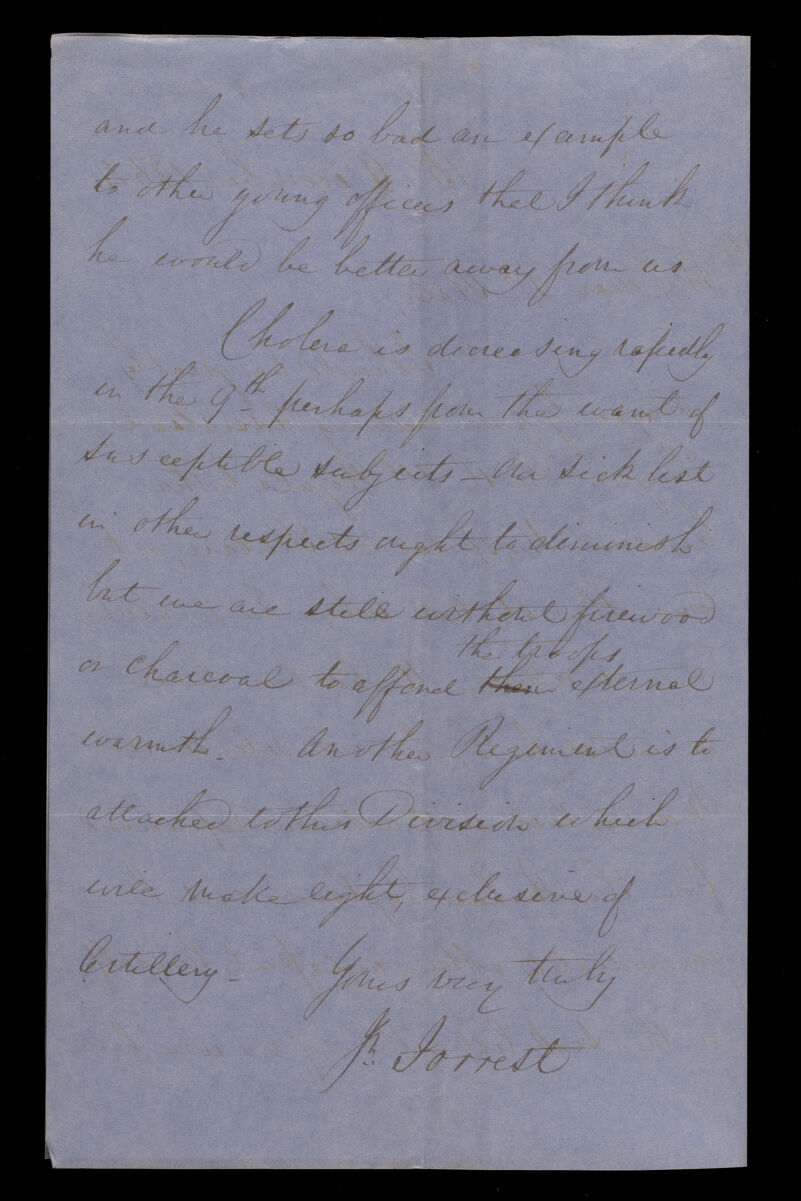 and he sets so bad an example
to other young officers that I think
he would be better away from us
Cholera is decreasing rapidly
in the 9th perhaps from the want of
susceptible subjects - Our sick list
in other respects ought to diminish
but we are still without firewood
the troops
or charcoal to afford them external
warmth - Another Regiment is to
attached to this Division which
will make eight, exclusive of
Artillery - Yours very truly
Jn. Forrest